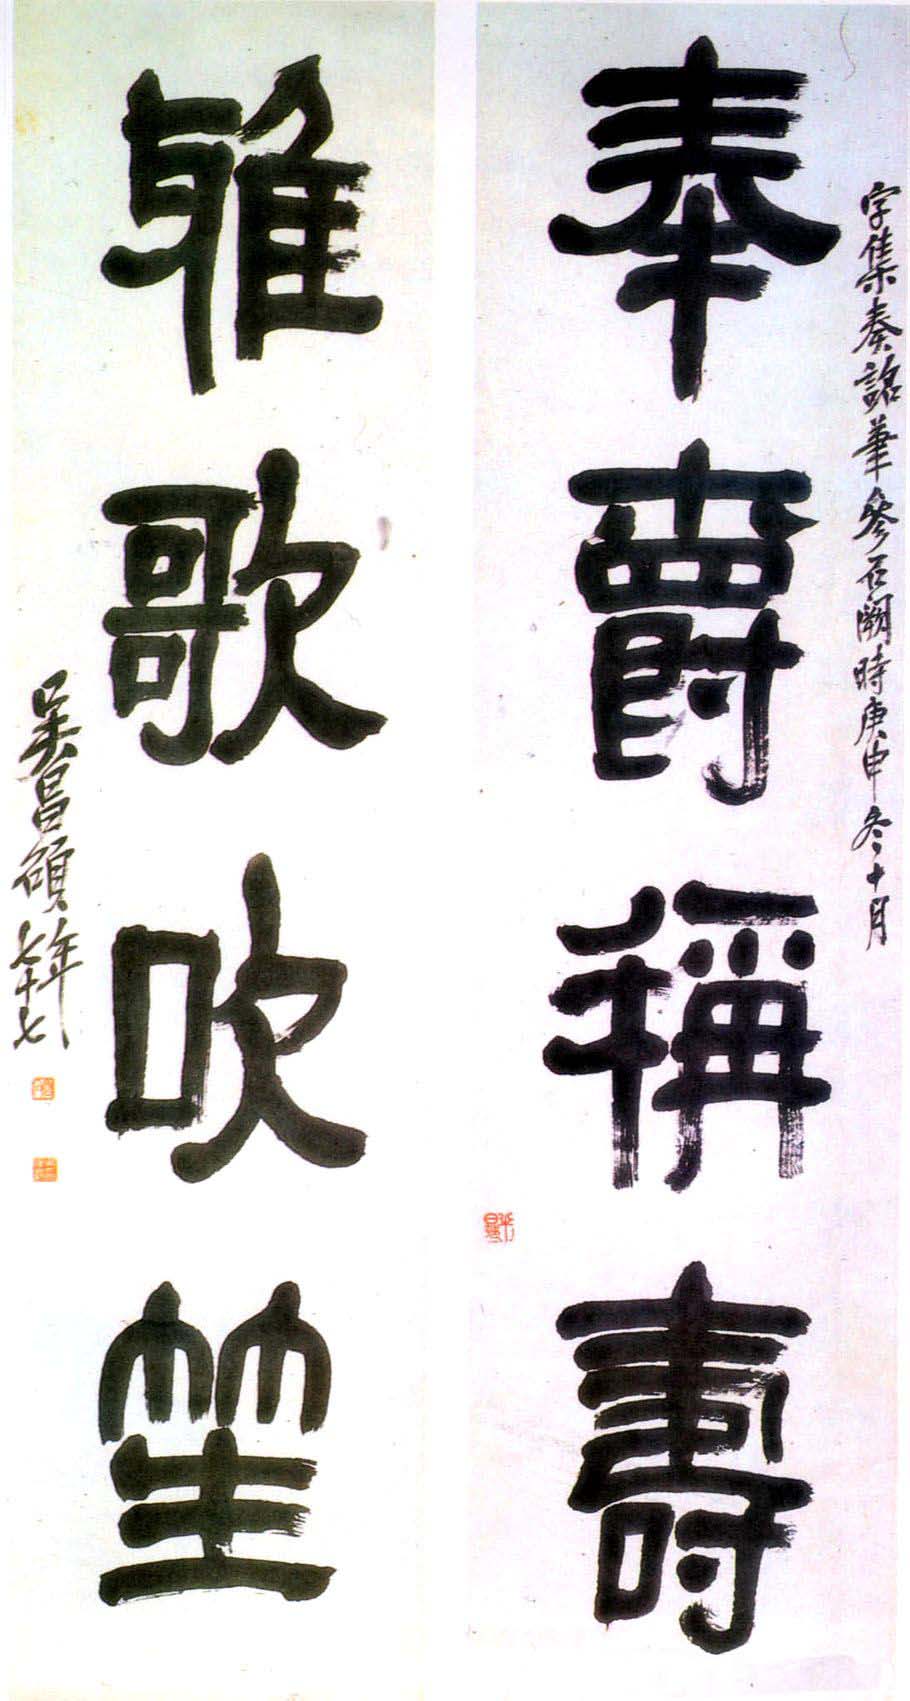 字集奏銘筆參石闕時庚申冬十月
奉爵稱壽
雅歌吹笙
吳昌碩年七十七